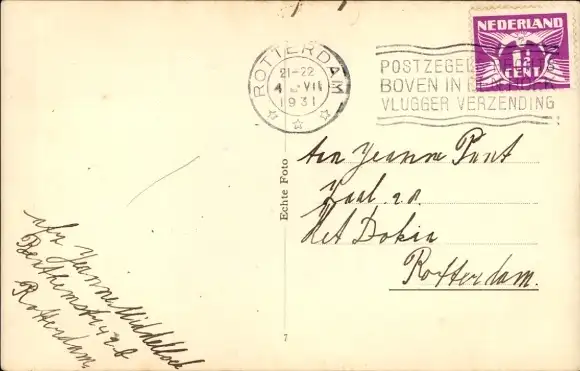 NEDERLAND
1½
CENT
ROTTERDAM
21-22
4 VII
1931
POSTZEGEL RECHTS
BOVEN IN
VLUGGER VERZENDING
Echte Foto
Aan Jeanne Punt
Zaal
Het Dokia
Rotterdam.
afz Jeanne Middelkoop
Rotterdam
7